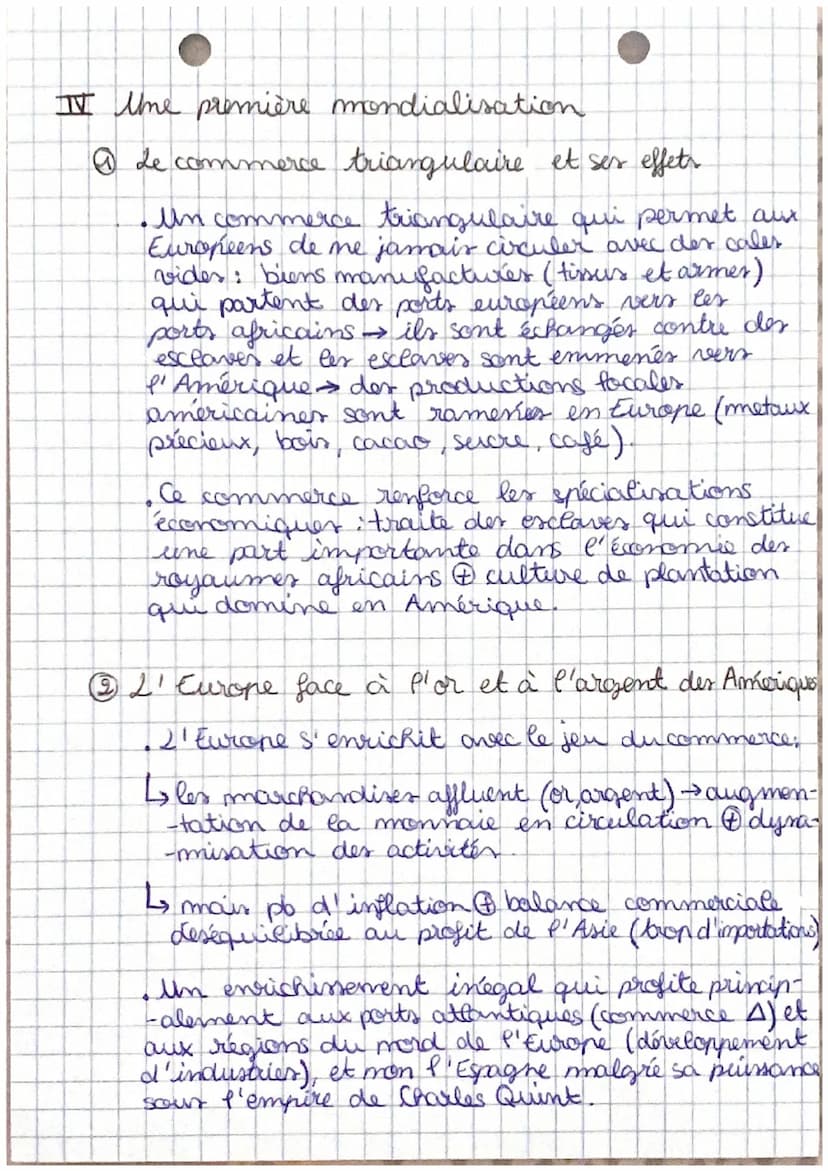 IV Une première mondialisation
① Le commerce triangulaire et ses effets
. Un commerce triangulaire qui permet aux
Européens de ne jamais circuler avec des cales
vides : biens manufacturés (tissus et armes)
qui partent des ports européens vers les
ports africains → ils sont échangés contre des
esclaves et les esclaves sont emmenés vers
l'Amérique → des productions locales
américaines sont ramenées en Europe (métaux
précieux, bois, cacao, sucre, café).
. Ce commerce renforce les spécialisations
économiques : traite des esclaves qui constitue
une part importante dans l'économie des
royaumes africains ⊕ culture de plantation
qui domine en Amérique.
② L'Europe face à l'or et à l'argent des Amériques
. L'Europe s'enrichit avec le jeu du commerce:
↳ les marchandises affluent (or, argent) → augmen-
-tation de la monnaie en circulation ⊕ dyna-
-misation des activités.
↳ mais pb d'inflation ⊕ balance commerciale
deséquilibrée au profit de l'Asie (trop d'importations)
. Un enrichissement inégal qui profite princip-
-alement aux ports atlantiques (commerce Δ) et
aux régions du nord de l'Europe (développement
d'industries), et non l'Espagne malgré sa puissance
sous l'empire de Charles Quint.